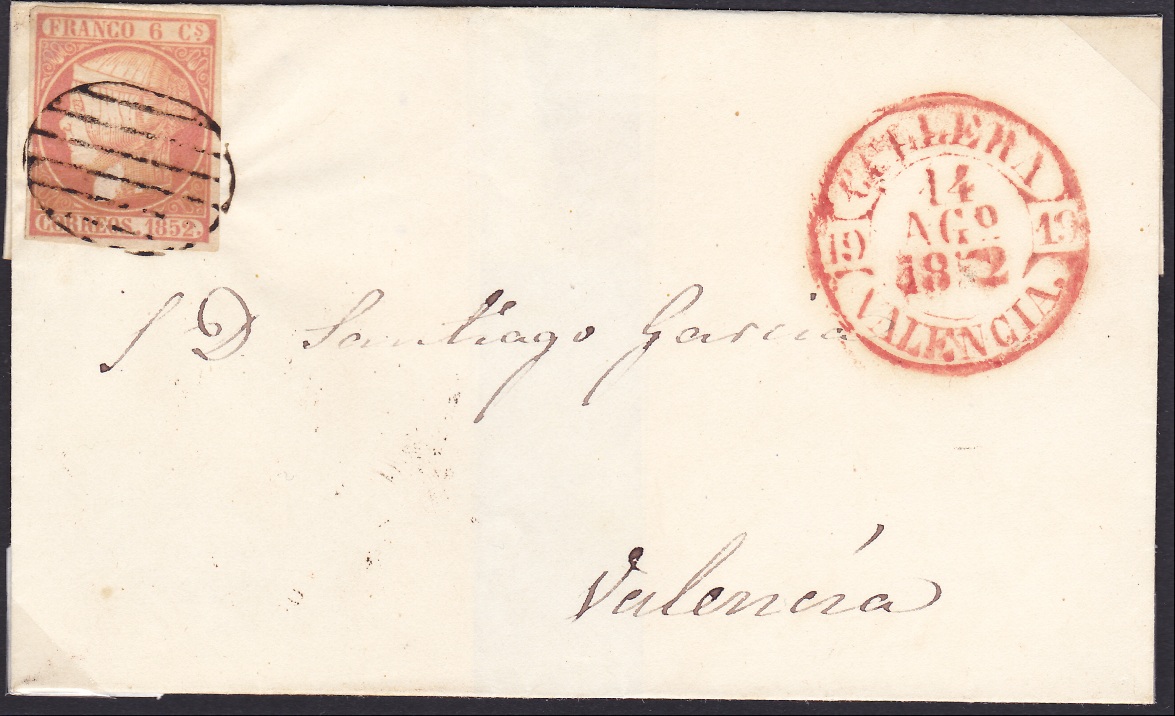 FRANCO 6 Cs
CORREOS. 1852.
CULLERA
14
AGº
1852
19 19
VALENCIA.
S D Santiago Garcia
Valencia